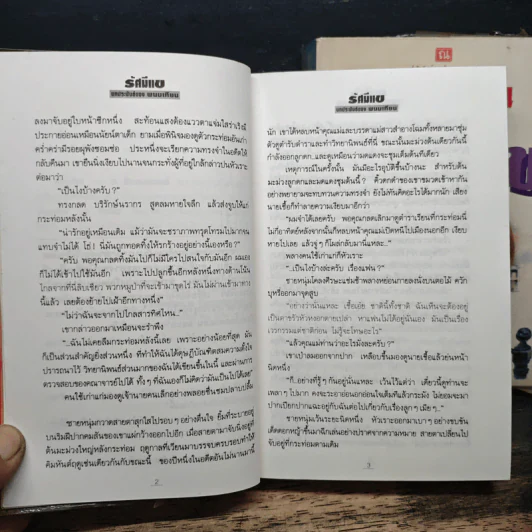 รัศมีแข
บทประพันธ์ของ พนมเทียน
ลงมาจับอยู่ใบหน้าซีกหนึ่ง สะท้อนแสงต้องแววตาแจ่มใสร่าเริงมี
ประกายอ่อนเหมือนนัยน์ตาเด็ก ยามเมื่อพินิจมองดูตัวกระท่อมอันเก่า
คร่ำคร่ามีรอยผุพังซอมซ่อ ประหนึ่งจะเรียกความทรงจำในอดีตให้
กลับคืนมา เขายืนนิ่งเงียบไปนานจนกระทั่งผู้ที่อยู่ใกล้กล่าวปนหัวเราะ
ต่อมาว่า
"เป็นไงบ้างครับ?"
ทรงกลด บริรักษ์นรากร สูดลมหายใจลึก แล้วส่งบุหรี่ให้แก่
กระท่อมหลังนั้น
"น่ารักอยู่เหมือนเดิม แม้ว่ามันจะชราภาพทรุดโทรมไปมากจน
แทบจำไม่ได้ โธ่! นี่มันถูกทอดทิ้งให้รกร้างอยู่อย่างนี้เองหรือ?"
"ครับ พอคุณกลดทิ้งมันไปก็ไม่มีใครไปสนใจกับมันอีก ผมเอง
ก็ไม่ได้เข้าไปใช้มันอีก เพราะไปปลูกขึ้นอีกหลังหนึ่งทางด้านโน้น
ไกลจากที่นี่ลิบเชียว พวกหมูป่าที่จะเข้ามาขุดไร่ มันไม่ผ่านเข้ามาทาง
นี้แล้ว เลยต้องย้ายไปเฝ้าอีกทางหนึ่ง"
"ไม่ว่าฉันจะจากไปไกลสารทิศไหน.."
เขากล่าวออกมาเหมือนจะรำพึง
"..ฉันไม่เคยลืมกระท่อมหลังนี้เลย เพราะอย่างน้อยที่สุด มัน
ก็เป็นส่วนสำคัญยิ่งส่วนหนึ่ง ที่ทำให้ฉันได้ดุษฎีบัณฑิตสมความตั้งใจ
ปรารถนาไว้ วิทยานิพนธ์ส่วนมากของฉันได้เขียนขึ้นในนี้ และผ่านการ
ตรวจสอบของคณาจารย์ไปได้ ทั้งๆ ที่ฉันเองก็ไม่คิดว่ามันเป็นไปได้เลย"
คนใช้เก่าแก่มองดูเจ้านายคนเล็กอย่างพลอยชื่นชมปลาบปลื้ม
ชายหนุ่มกวาดสายตาสุกใสไปรอบๆ อย่างตื่นใจ ยิ้มที่ระบายอยู่
บนริมฝีปากคมสันของเขาแม่กว้างออกไปอีก เมื่อสายตามาจับนิ่งอยู่ที่
ต้นมะม่วงใหญ่หลังกระท่อม ฤดูกาลที่เวียนมาบรรจบครบรอบทำให้
คิมหันต์ฤดูเช่นเดียวกันกับขณะนี้ ของปีหนึ่งในอดีตอันไม่นานมานี้
2
รัศมีแข
บทประพันธ์ของ พนมเทียน
นัก เขาได้หลบหน้าคุณแม่และบรรดาแม่สาวสำอางโฉมทั้งหลายมาซุ่ม
ตัวดูตำรับตำราและทำวิทยานิพนธ์ที่นี่ ขณะนั้นมะม่วงต้นเดียวกันนี้
กำลังออกลูกดก..และดูเหมือนว่ามดแดงจะชุมเต็มต้นทีเดียว
เหตุการณ์ในครั้งนั้น มันมีอะไรอุบัติขึ้นบ้างนะ สำหรับต้น
มะม่วงลูกดกและมดแดงชุมต้นนี้? คิ้วดกดำของเขาขมวดเข้าหากัน
อย่างพยายามจะทบทวนความทรงจำ ยังไม่ทันคิดอะไรได้มากนัก เสียง
นายเชื้อก็ทำลายความเงียบมาอีกว่า
"ผมจำได้เลยครับ พอคุณกลดเลิกมาดูตำราเรียนที่กระท่อมนี่
ไม่กี่อาทิตย์หลังจากนั้นก็ไปหลบหน้าคุณแม่เปิดหนีไปเมืองนอกอีก เงียบ
หายไปเลย แล้วจู่ๆ ก็โผล่กลับมานี่แหละ.."
พลางคนใช้เก่าแก่ก็หัวเราะ
"..เป็นไงบ้างล่ะครับ เรื่องแฟน?"
ชายหนุ่มโคลงศีรษะแช่มช้าพลางหย่อนกายลงนั่งบนตอไม้ ควัก
บุหรี่ออกมาจุดสูบ
"อย่างว่านั่นแหละ เชื้อเอ๋ย ชาตินี้ทั้งชาติ ฉันเห็นจะต้องอยู่
เป็นตาชรัวหัวหงอกตายเปล่า หาแฟนไม่ได้อยู่นั่นเอง มันเป็นเรื่อง
เวรกรรมแต่ชาติก่อน ไม่รู้จะโทษอะไร"
"แล้วคุณแม่ท่านว่าอะไรมั่งละครับ?"
เขาเป่าลมออกจากปาก เหลือบขึ้นมองดูนายเชื้อแล้วย่นหน้า
นิดหนึ่ง
"ก็..อย่างที่รู้ๆ กันอยู่นั่นแหละ เว้นไว้แต่ว่า เดี๋ยวนี้ดูท่านจะ
เพลาๆ ไปมาก คงจะระอาอ่อนอกอ่อนใจเต็มทีแล้วกระมัง ไม่ยอมจะมา
ปากเปียกปากแฉะอยู่กับฉันต่อไปเกี่ยวกับเรื่องลูกๆ เมียๆ.."
ชายหนุ่มเว้นระยะนิดหนึ่ง หัวเราะออกมาเบาๆ อย่างขบขัน
เด็ดดอกหญ้าขึ้นมาฉีกเล่นอย่างปราศจากความหมาย สายตาเปลี่ยนไป
จับอยู่ที่กระท่อมตามเดิม
3